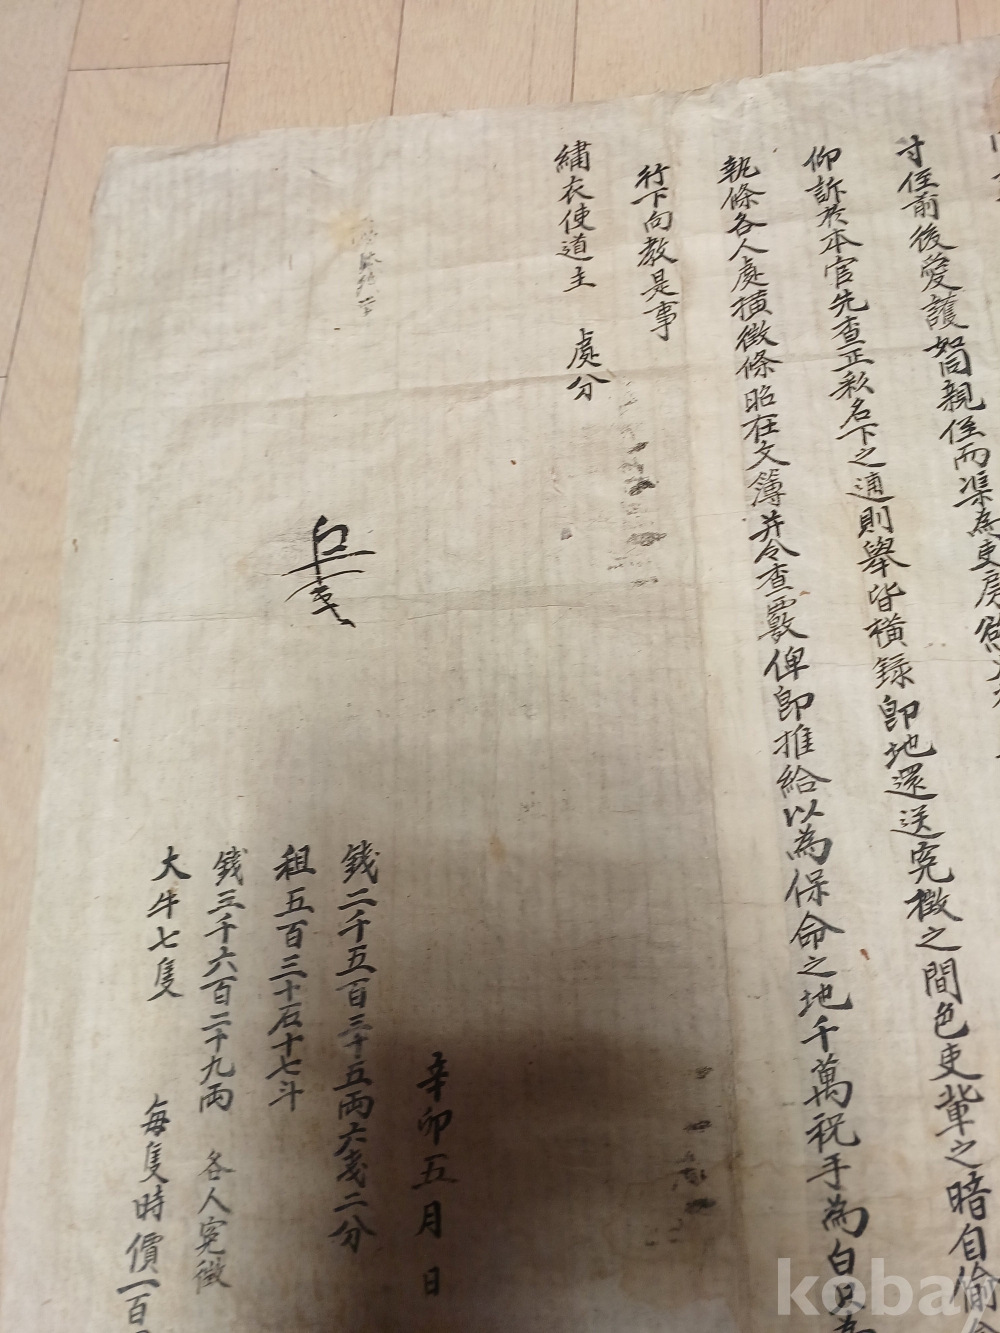 寸侄前後愛護如同親侄而渠為吏房
仰訴於本官先查正欵名下之逋則舉皆橫錄卽地還送寃徵之間色吏輩之暗自偷
執條各人處橫徵條昭在文簿并令查覈俾卽推給以為保命之地千萬祝手為白只為
行下向教是事
繡衣使道主 處分
辛卯五月 日
錢二千五百三十五兩六戔二分
租五百三十石十七斗
錢三千六百二十九兩 各人寃徵
大牛七隻 每隻時價一百
koba